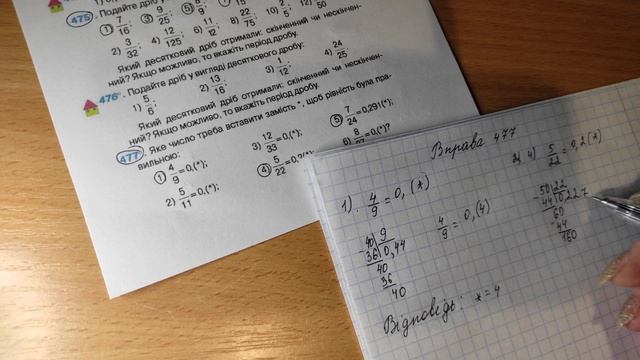 475
1) 7/16;
3) 9/25
2) 3/32;
4) 12/125
6) 11/12;
8) 4/75
10) 2/5;
12) /50
Який десятковий дріб отримали: скінченний чи нескінчен-
ний? Якщо можливо, то вкажіть період дробу.
476. Подайте дріб у вигляді десяткового дробу:
1) 5/6;
2) 13/16;
3) 1/12;
4) 24/25
Який десятковий дріб отримали: скінченний чи нескінчен-
ний? Якщо можливо, то вкажіть період дробу.
477. Яке число треба вставити замість *, щоб рівність була пра-
вильною:
1) 4/9 = 0,(*);
3) 12/33 = 0,(*)
5) 7/24 = 0,291(*);
2) 5/11 = 0,(*);
4) 5/22 = 0,2(*)
Вправа 477
1). 4/9 = 0, (*)
4/9 = 0,(4)
40 | 9
36 | 0,44
40
36
40
Відповідь: * = 4
4) 5/22 = 0,2(*)
50 | 22
44 | 0,227
60
44
160